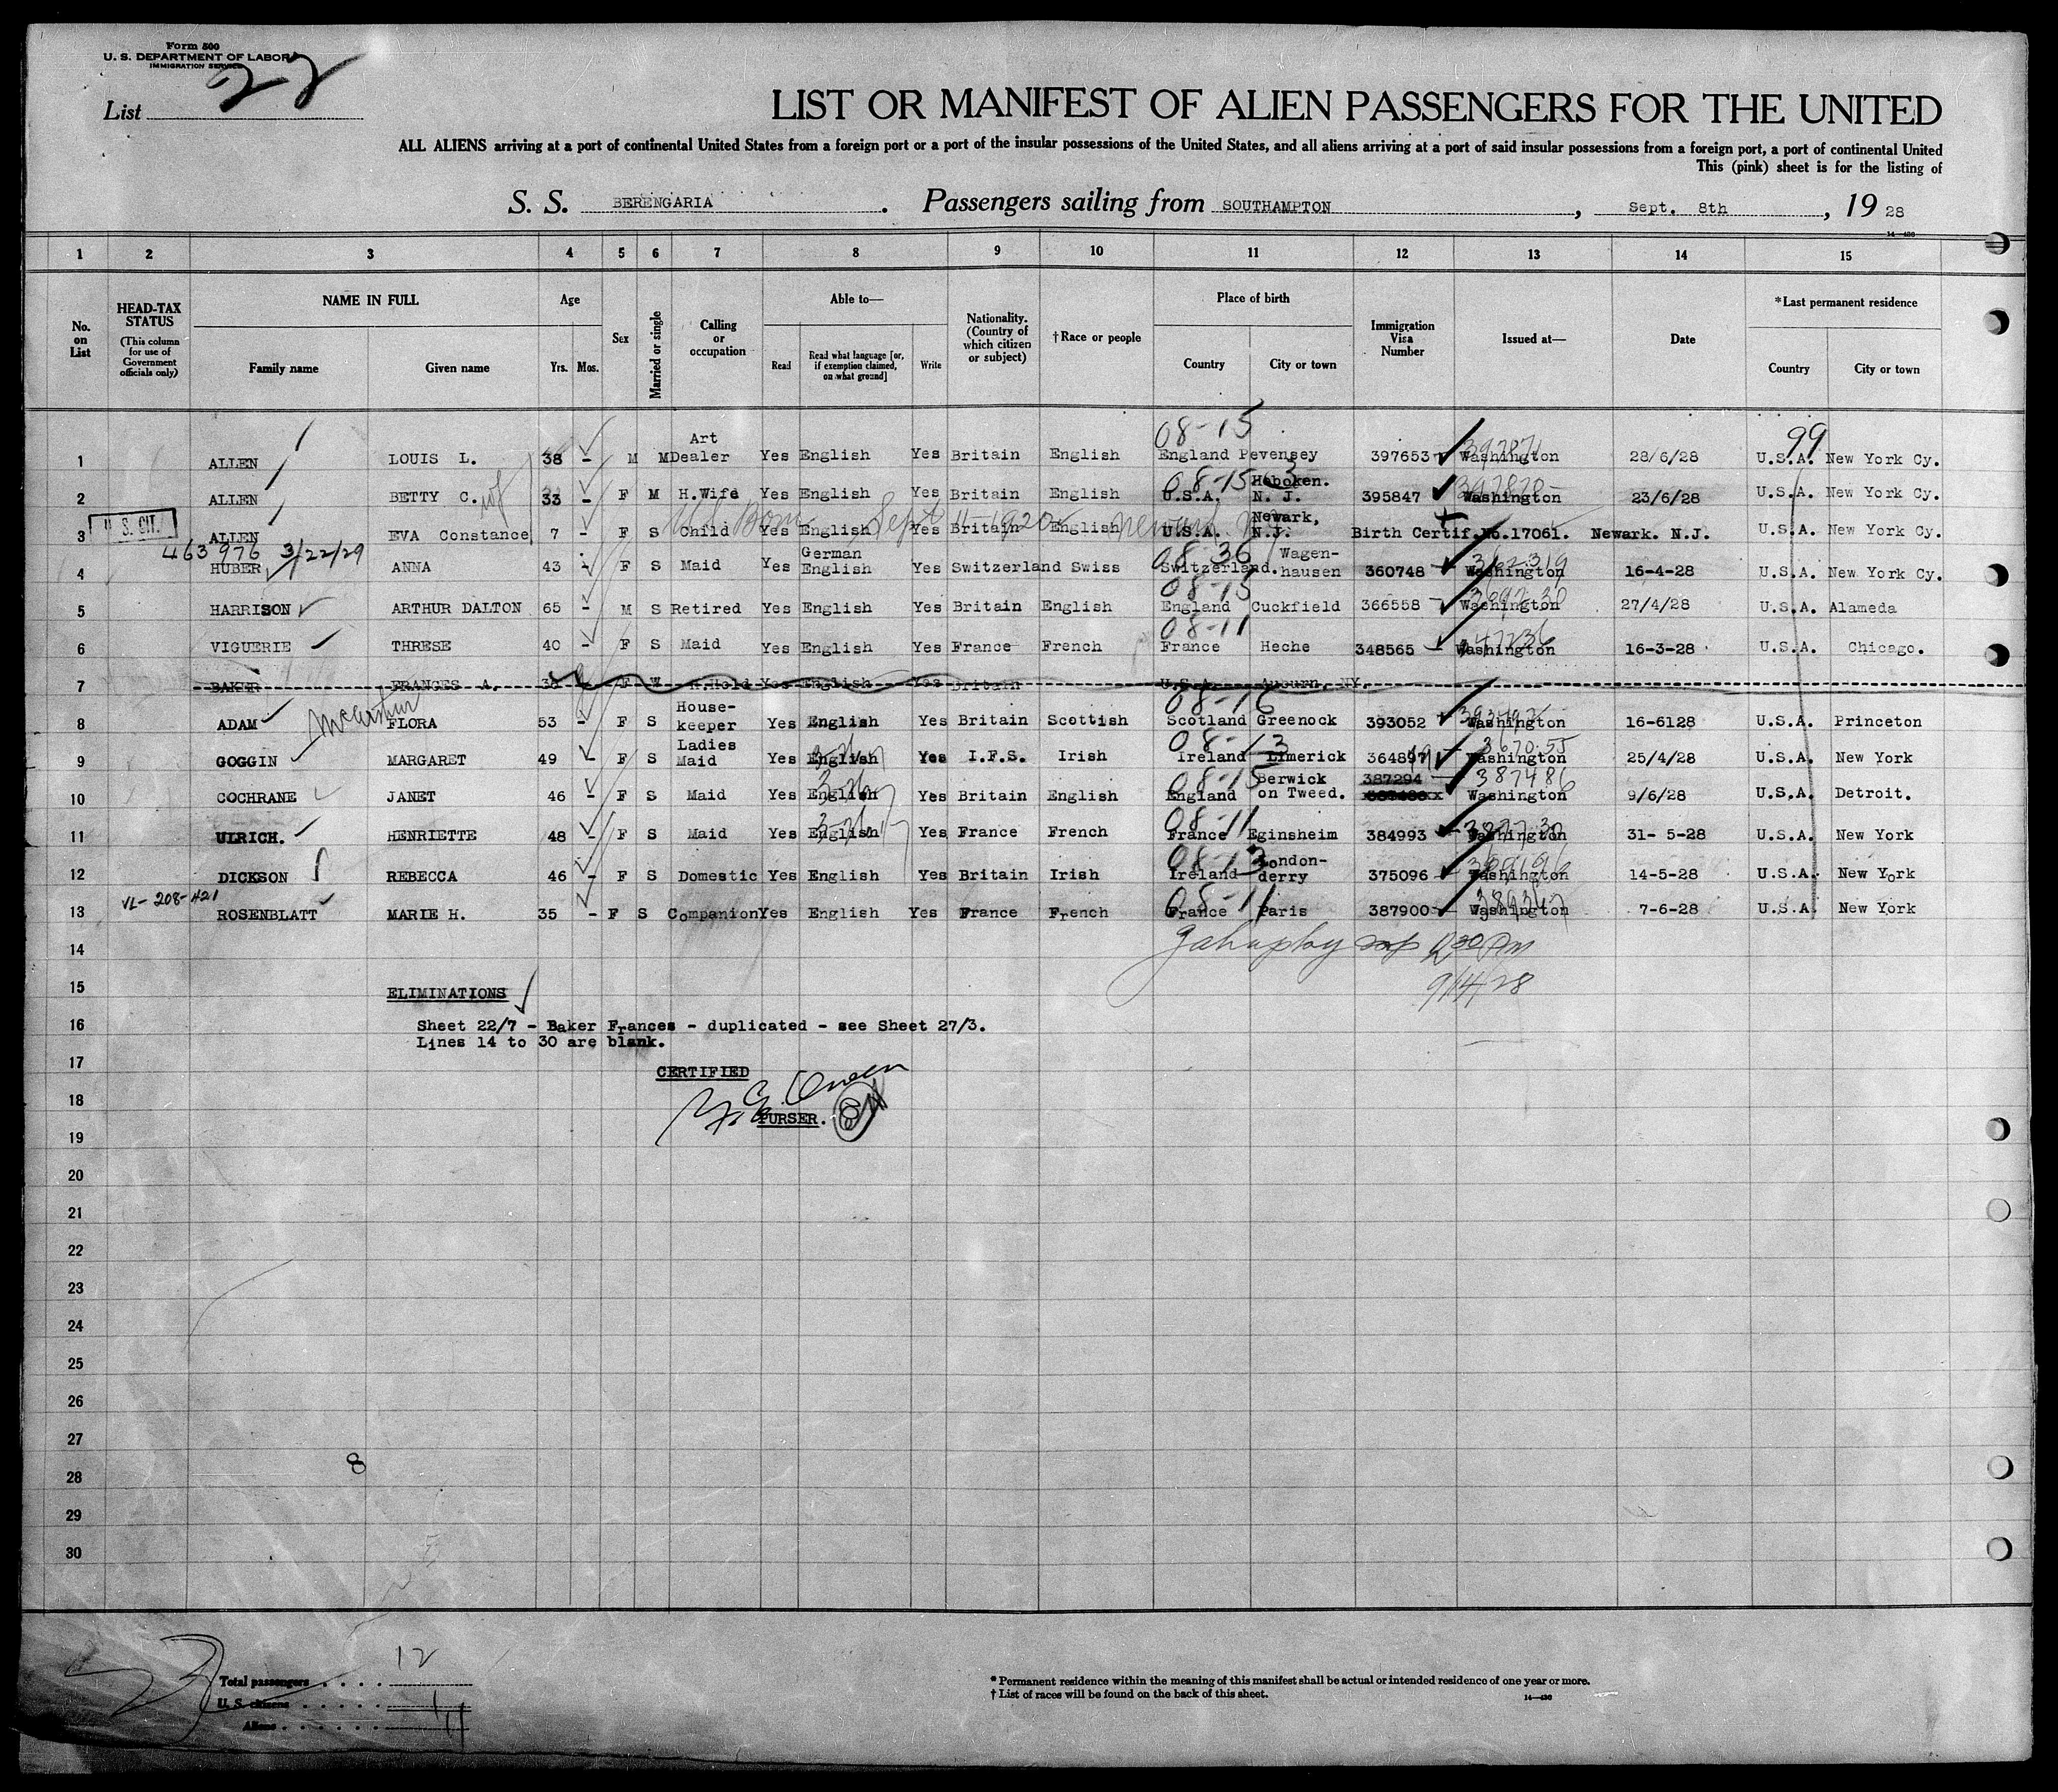 Form 500
U. S. DEPARTMENT OF LABOR
IMMIGRATION SERVICE
22
List
LIST OR MANIFEST OF ALIEN PASSENGERS FOR THE UNITED
ALL ALIENS arriving at a port of continental United States from a foreign port or a port of the insular possessions of the United States, and all aliens arriving at a port of said insular possessions from a foreign port, a port of continental United
This (pink) sheet is for the listing of
S. S. BERENGARIA. Passengers sailing from SOUTHAMPTON, Sept. 8th, 19 28
14—430
1 2 3 4 5 6 7 8 9 10 11 12 13 14 15
No. on List
HEAD-TAX STATUS (This column for use of Government officials only)
NAME IN FULL
Family name Given name
Age
Yrs. Mos.
Sex
Married or single
Calling or occupation
Able to—
Read Read what language [or, if exemption claimed, on what ground] Write
Nationality. (Country of which citizen or subject)
†Race or people
Place of birth
Country City or town
Immigration Visa Number
Issued at—
Date
*Last permanent residence
Country City or town
08-15 99
1 ALLEN LOUIS L. 38 - M M Art Dealer Yes English Yes Britain English England Pevensey 397653 Washington 28/6/28 U.S.A. New York Cy.
08-15
2 ALLEN BETTY C. wf 33 - F M H.Wife Yes English Yes Britain English U.S.A. Hoboken. N. J. 395847 Washington 23/6/28 U.S.A. New York Cy.
U. S. CIT. US Born Sept 11-1920 Newark NJ
3 ALLEN EVA Constance 7 - F S Child Yes English Yes Britain English U.S.A. Newark, N.J. Birth Certif.No.17061. Newark. N.J. U.S.A. New York Cy.
463976 3/22/29 08-36 362319
4 HUBER ANNA 43 - F S Maid Yes German English Yes Switzerland Swiss Switzerland. Wagen-hausen 360748 Washington 16-4-28 U.S.A. New York Cy.
08-15
5 HARRISON ARTHUR DALTON 65 - M S Retired Yes English Yes Britain English England Cuckfield 366558 Washington 27/4/28 U.S.A. Alameda
08-11
6 VIGUERIE THRESE 40 - F S Maid Yes English Yes France French France Heche 348565 Washington 16-3-28 U.S.A. Chicago.
7 BAKER FRANCES A. F W H.Hold Yes English Yes Britain U.S.A. Auburn, NY.
McArthur 08-16
8 ADAM FLORA 53 - F S House-keeper Yes English Yes Britain Scottish Scotland Greenock 393052 Washington 16-6128 U.S.A. Princeton
08-13 367055
9 GOGGIN MARGARET 49 - F S Ladies Maid Yes English Yes I.F.S. Irish Ireland Limerick 364897 Washington 25/4/28 U.S.A. New York
08-15 387486
10 COCHRANE JANET 46 - F S Maid Yes English Yes Britain English England Berwick on Tweed. 387294 Washington 9/6/28 U.S.A. Detroit.
08-11
11 ULRICH. HENRIETTE 48 - F S Maid Yes English Yes France French France Eginsheim 384993 Washington 31- 5-28 U.S.A. New York
08-13
12 DICKSON REBECCA 46 - F S Domestic Yes English Yes Britain Irish Ireland London-derry 375096 Washington 14-5-28 U.S.A. New York
VL-208-421 08-11
13 ROSENBLATT MARIE H. 35 - F S Companion Yes English Yes France French France Paris 387900 Washington 7-6-28 U.S.A. New York
14
9/14/28
15 ELIMINATIONS
16 Sheet 22/7 - Baker Frances - duplicated - see Sheet 27/3.
Lines 14 to 30 are blank.
17 CERTIFIED
18
PURSER.
19
20
21
22
23
24
25
26
27
8
28
29
30
Total passengers . . . . 12
U. S. citizens . . . . . 1
Aliens . . . . . . 11
* Permanent residence within the meaning of this manifest shall be actual or intended residence of one year or more.
† List of races will be found on the back of this sheet.
14—430